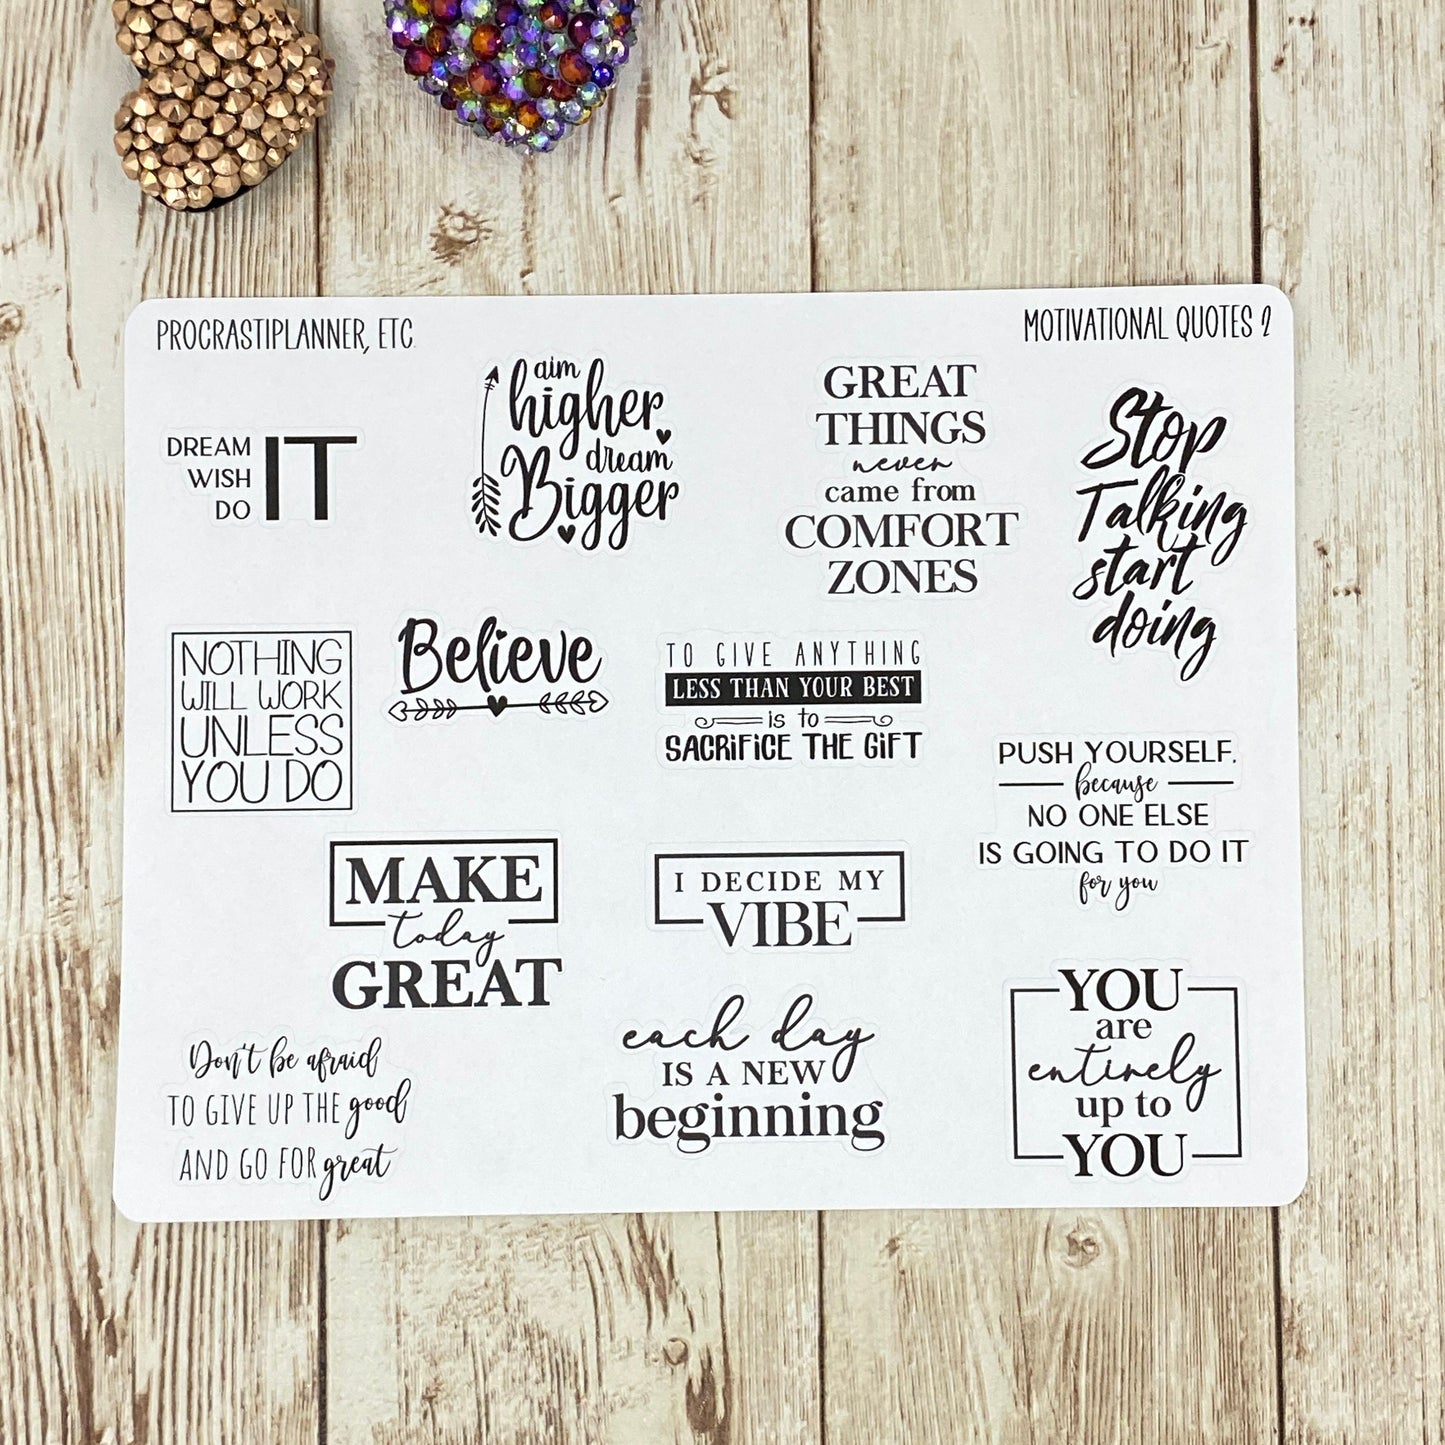 PROCRASTIPLANNER, ETC.
MOTIVATIONAL QUOTES 2
DREAM
WISH
DO
IT
aim
higher
dream
Bigger
GREAT
THINGS
never
came from
COMFORT
ZONES
Stop
Talking
start
doing
NOTHING
WILL WORK
UNLESS
YOU DO
Believe
TO GIVE ANYTHING
LESS THAN YOUR BEST
is to
SACRIFICE THE GIFT
PUSH YOURSELF,
because
NO ONE ELSE
IS GOING TO DO IT
for you
MAKE
today
GREAT
I DECIDE MY
VIBE
YOU
are
entirely
up to
YOU
Don't be afraid
TO GIVE UP THE good
AND GO FOR great
each day
IS A NEW
beginning